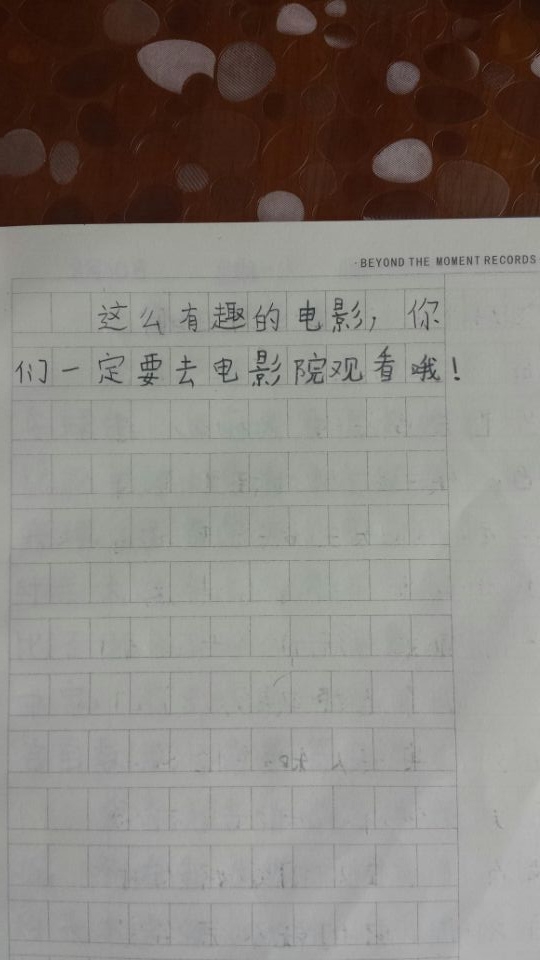 ·BEYOND THE MOMENT RECORDS
这么有趣的电影，你
们一定要去电影院观看哦！